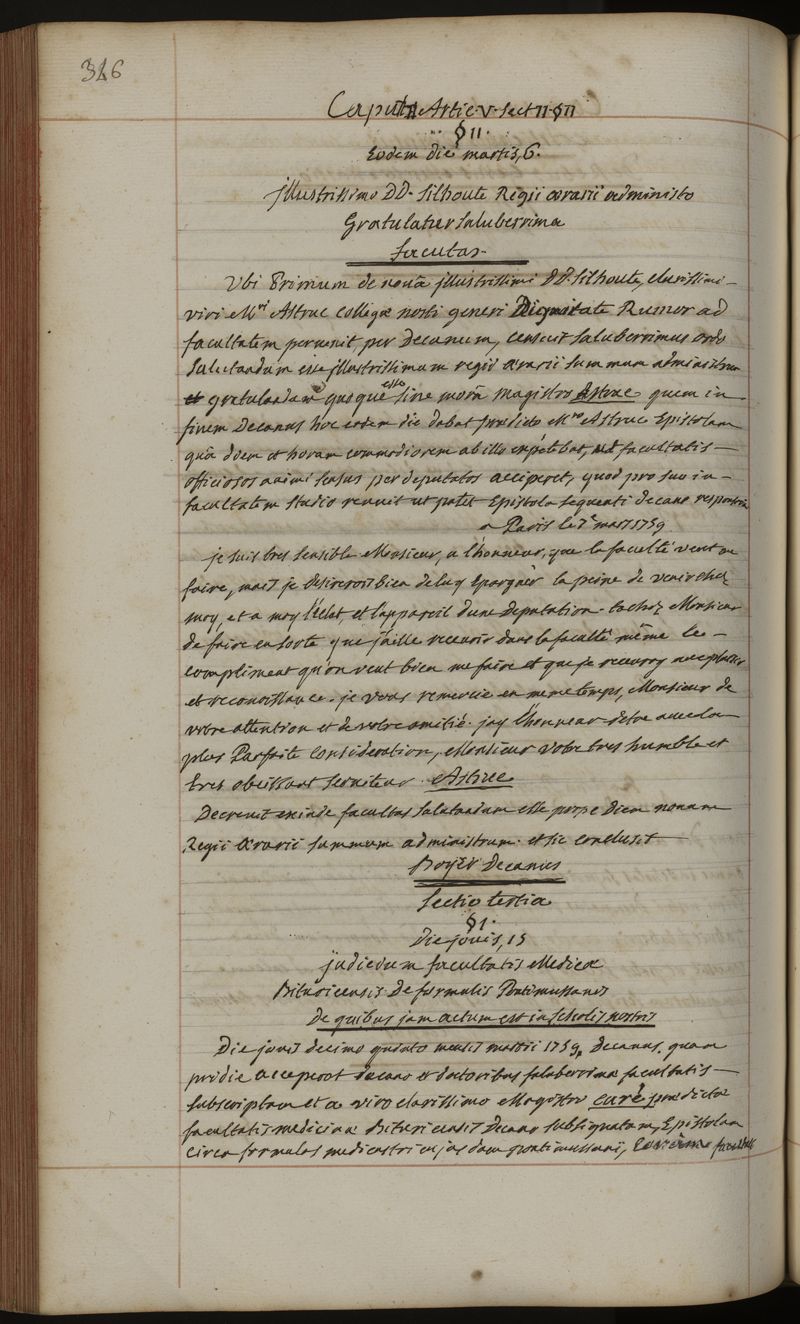 326
Caput II Artic. V. Sect II. § II
§ II.
Eodem die martis, 6.
jllustrissimo DD. Silhoute Regii ærarii administro
Gratulatur saluberrima
facultas.
Ubi Primum de novâ jllustrissimi DD. Silhoute, clarissimi
viri Mri Astruc collegæ nostri generi Dignitate Rumor ad
facultatem pervenit per Decanum, censuit saluberrimus ordo
salutandum esse jllustrissimum regii ærarii summum administrum
et gratulandum quoque esse sine morâ magistro Astruc quem in
finem Decanus hoc eodem die dabat prædicto Mro Astruc Epistolam
quâ diem et horam commodiorem ab illo expetebat, ut facultatis
officiosos animi sensus per deputatos acciperet, quod pro suo in
facultatem studio renuit ut patet Epistola sequenti decano responsiva
a Paris le 7e mars 1759
je suis tres sensible Monsieur, a l'honneur, que la faculté veut me
faire, mais je desirerois bien de luy epargner la peine de venir chez
moy, et a moy l'éclat, et l'appareil d'une deputation. tachez Monsieur
de faire en sorte que j'aille recevoir dans la faculté même le
compliment qu'on veut bien me faire et que je recevray avec plaisir
et reconoissance. je vous remercie en meme temps, Monsieur de
votre attention et de votre amitié. jay l'honneur detre avec la
plus Parfaite consideration, Monsieur votre tres humble et
tres obeissant serviteur. Astruc
Decrevit exinde facultas salutandum esse prope diem novum
Regii ærarii summum administrum. et sic conclusit
Boyer Decanus
Sectio tertia
§ I.
Die jovis, 15
judicium facultatis Medicæ
Bituricensis De formulis Pontimussanis
De quibus jam actum est in scholis nostris
Die jovis decimo quinto mensis martii 1759, Decanus, quam
pridie acceperat decano et doctoribus saluberrimæ facultatis
subscriptam et a viro clarissimo Magistro curé prædictæ
facultatis medicinæ Bituricensis Decano subsignatam, Epistolam
circa formulas medicastri cujusdam pontimussani,